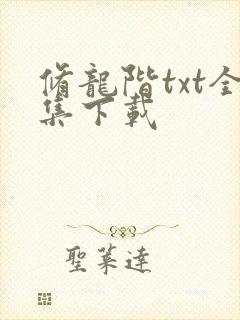 脩龍階txt全
集下載
聖萊達